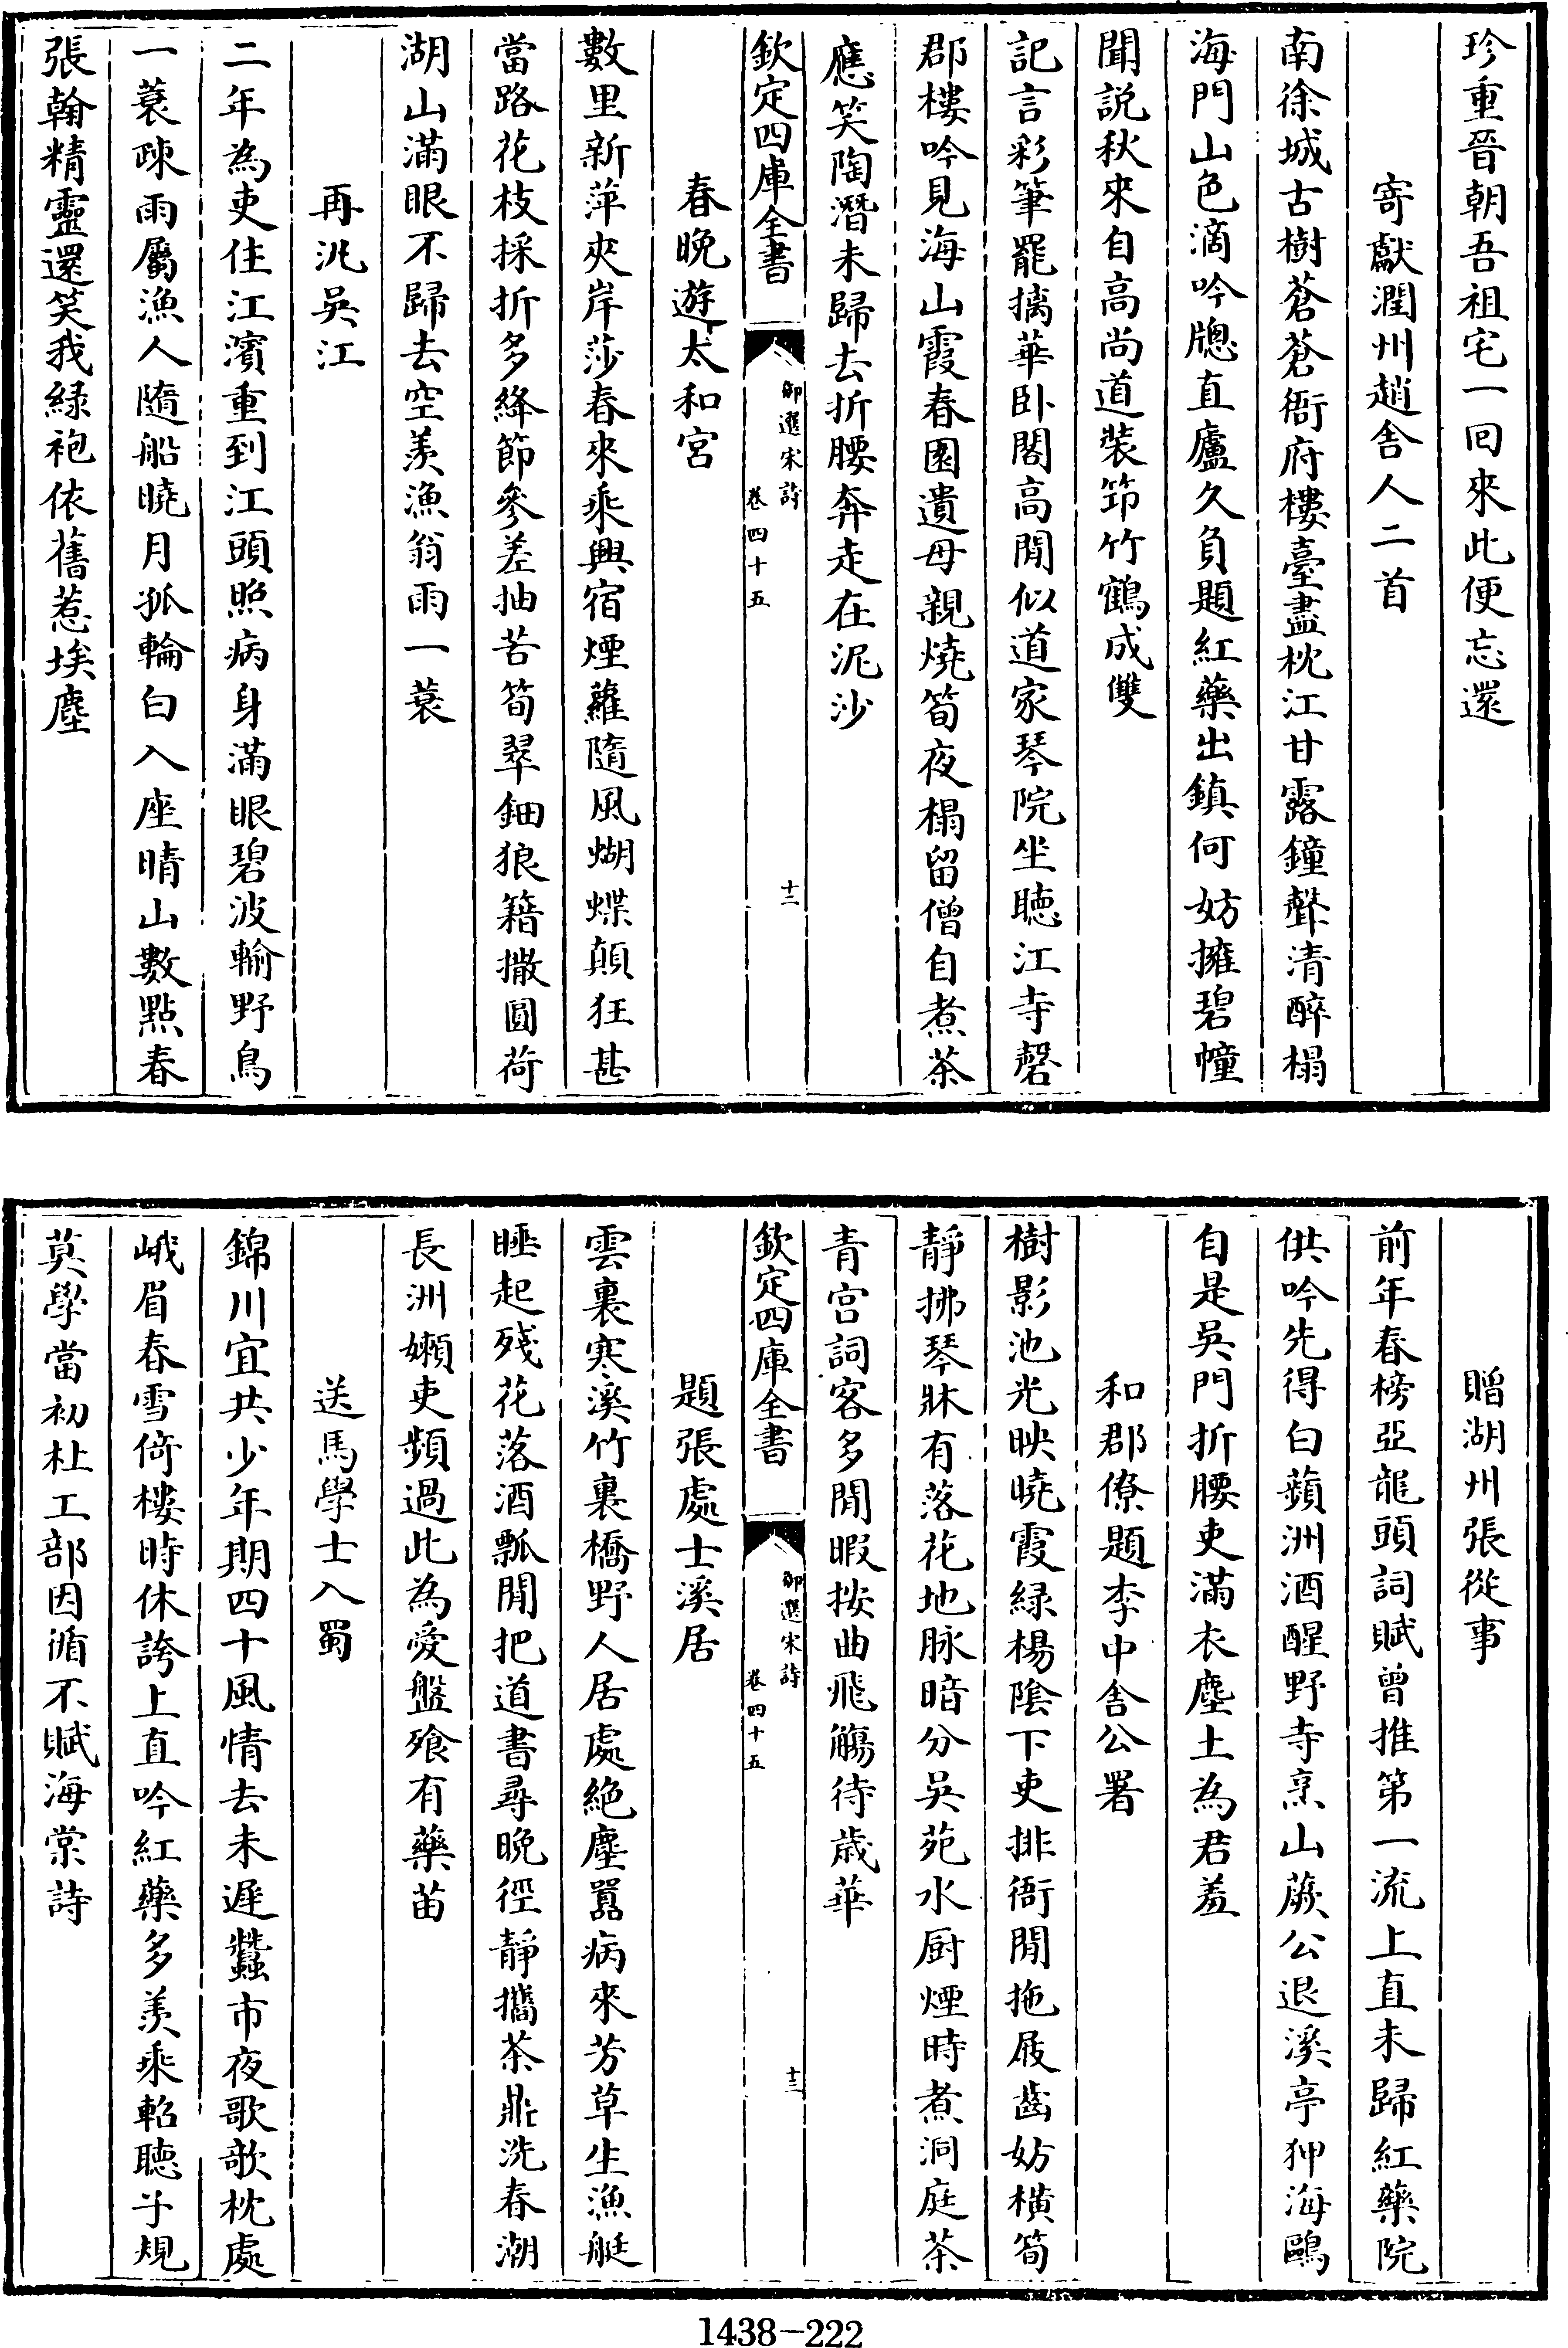 珍重晉朝吾祖宅一囘來此便忘還
寄獻潤州趙舍人二首
南徐城古樹蒼蒼衙府樓臺盡枕江甘露鐘聲清醉榻
海門山色滴吟牕直廬久負題紅藥出鎮何妨擁碧幢
聞説秋來自高尚道裝筇竹鶴成雙
記言彩筆罷摛華卧閤高閒似道家琴院坐聽江寺磬
郡樓吟見海山霞春園遺母親燒筍夜榻留僧自煮茶
應笑陶潛未歸去折腰奔走在泥沙
欽定四庫全書
御選宋詩
卷四十五
十二
春晚遊太和宮
數里新萍夾岸莎春來乘興宿煙蘿隨風蝴蝶顛狂甚
當路花枝採折多絳節參差抽苦筍翠鈿狼籍撒圓荷
湖山滿眼不歸去空羨漁翁雨一蓑
再汎吳江
二年為吏住江濱重到江頭照病身滿眼碧波輸野鳥
一蓑疎雨屬漁人隨船曉月孤輪白入座晴山數點春
張翰精靈還笑我緑袍依舊惹埃塵
贈湖州張從事
前年春榜亞龍頭詞賦曾推第一流上直未歸紅藥院
供吟先得白蘋洲酒醒野寺烹山蕨公退溪亭狎海鷗
自是吳門折腰吏滿衣塵土為君羞
和郡僚題李中舍公署
樹影池光映曉霞緑楊陰下吏排衙閒拖屐齒妨横筍
靜拂琴牀有落花地脉暗分吳苑水厨煙時煮洞庭茶
青宫詞客多閒暇按曲飛觴待歲華
欽定四庫全書
御選宋詩
卷四十五
十三
題張處士溪居
雲裏寒溪竹裏橋野人居處絶塵囂病來芳草生漁艇
睡起殘花落酒瓢閒把道書尋晚徑靜攜茶鼎洗春潮
長洲嬾吏頻過此為愛盤飱有藥苗
送馬學士入蜀
錦川宜共少年期四十風情去未遲蠶市夜歌欹枕處
峨眉春雪倚樓時休誇上直吟紅藥多羨乘軺聽子規
莫學當初杜工部因循不賦海棠詩
1438-222